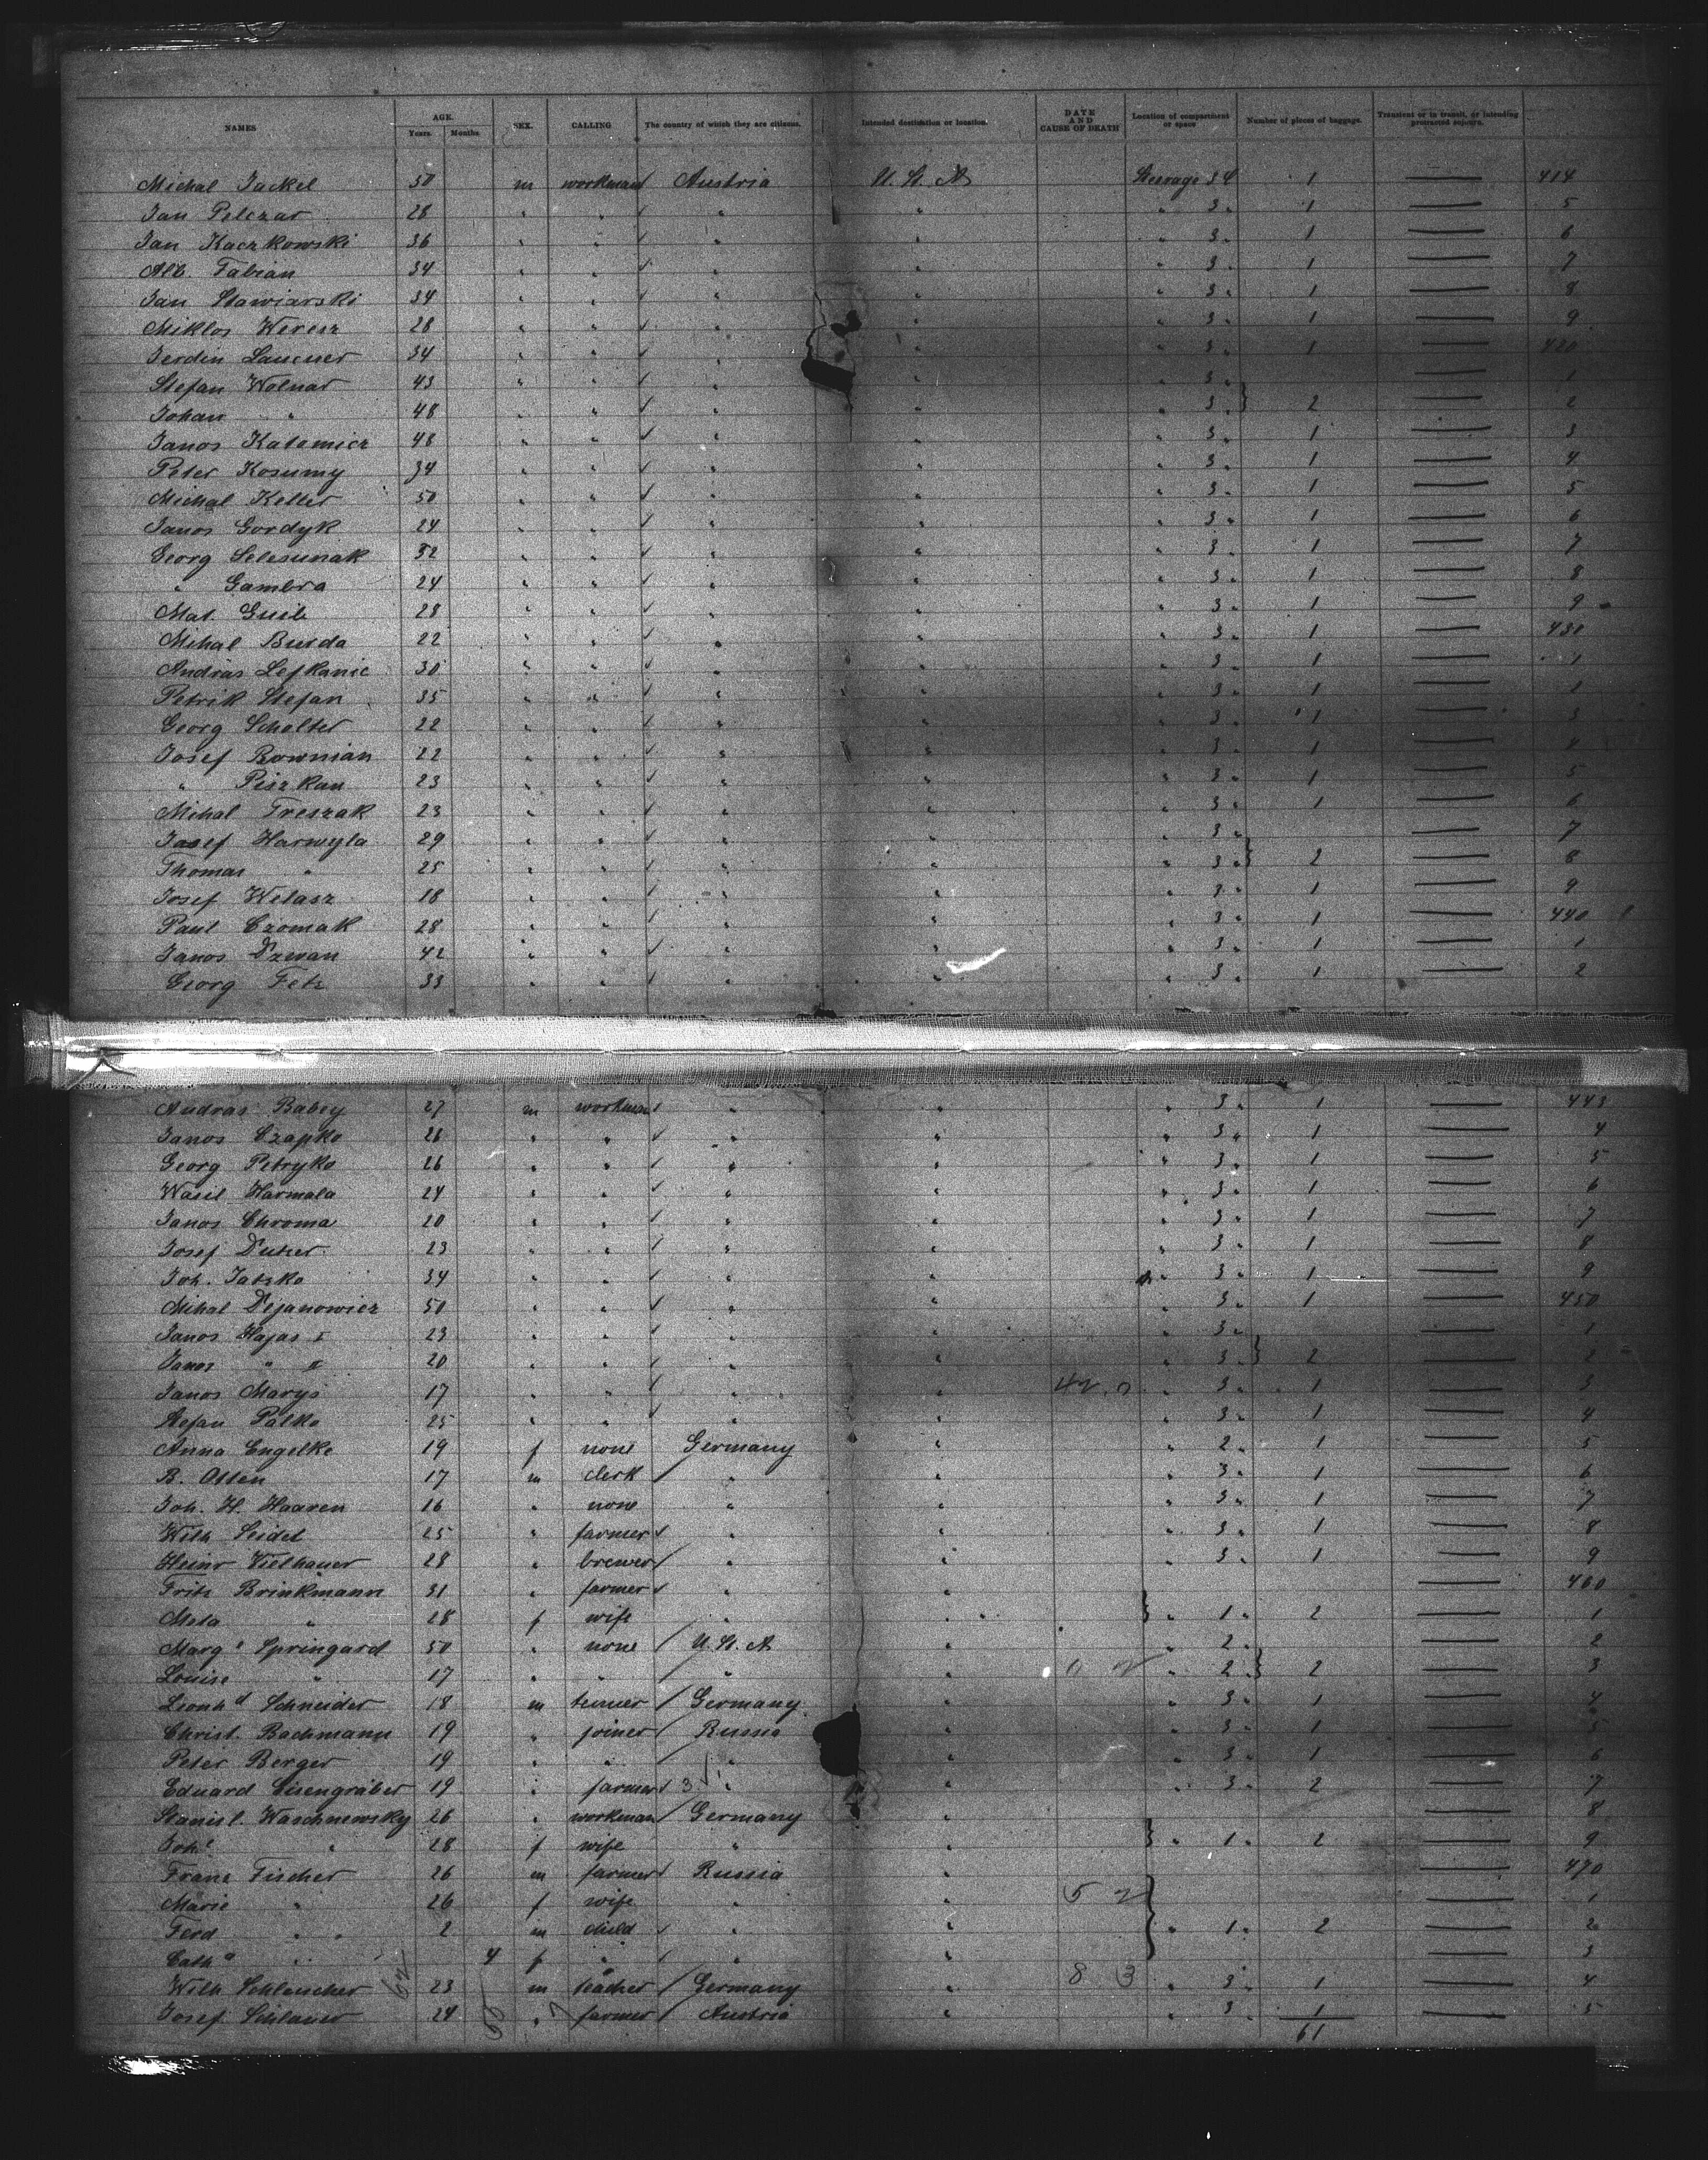 NAMES AGE. Years. Months SEX. CALLING The country of which they are citizens. Intended destination or location. DATE AND CAUSE OF DEATH Location of compartment or space Number of pieces of baggage. Transient or in transit, or intending protracted sojourn.
Michal Jackel 50 m workman Austria U. St. A Steerage 34 1 — 414
Jan Pelczar 28 " " " " " 3 " 1 — 5
Jan Kaczkowski 36 " " " " " 3 " 1 — 6
Alb. Fabian 34 " " " " " 3 " 1 — 7
Jan Stawiarski 34 " " " " " 3 " 1 — 8
Miklos Weresz 28 " " " " " 3 " 1 — 9
Ferdin Laucner 34 " " " " " 3 " 1 — 420
Stefan Wolnar 43 " " " " " 3 " — 1
Johan " 48 " " " " " 3 " } 2 — 2
Janos Katomicz 48 " " " " " 3 " 1 — 3
Peter Kosumy 34 " " " " " 3 " 1 — 4
Michal Keller 50 " " " " " 3 " 1 — 5
Janos Gordyk 24 " " " " " 3 " 1 — 6
Georg Selesunak 32 " " " " " 3 " 1 — 7
" Gambra 24 " " " " " 3 " 1 — 8
Mat. Guib 28 " " " " " 3 " 1 — 9
Mihal Burda 22 " " " " " 3 " 1 — 430
Andras Lefkanic 30 " " " " " 3 " 1 — 1
Petrik Stefan 35 " " " " " 3 " 1 —
Georg Scholter 22 " " " " " 3 " 1 — 3
Josef Bownian 22 " " " " " 3 " 1 — 4
" Piszkan 23 " " " " " 3 " 1 — 5
Mihal Treszak 23 " " " " " 3 " 1 — 6
Josef Harwyla 29 " " " " " 3 " — 7
Thomas " 25 " " " " " 3 " } 2 — 8
Josef Welasz 18 " " " " " 3 " 1 — 9
Paul Czomak 28 " " " " " 3 " 1 — 440
Janos Dzwan 42 " " " " " 3 " 1 — 1
Georg Fetz 33 " " " " " 3 " 1 — 2
Andras Babey 27 m workman " " " 3 " 1 — 443
Janos Czapko 26 " " " " " 3 " 1 — 4
Georg Petryko 26 " " " " " 3 " 1 — 5
Wasil Harmala 24 " " " " " 3 " 1 — 6
Janos Chroma 20 " " " " " 3 " 1 — 7
Josef Dutzer 23 " " " " " 3 " 1 — 8
Joh. Jatzko 34 " " " " " 3 " 1 — 9
Mihal Dejanowicz 50 " " " " " 3 " 1 — 450
Janos Hajas I 23 " " " " 3 " — 1
Janos " II 20 " " " " " 3 " } 2 — 2
Janos Marys 17 " " " " " 3 " 1 — 3
Stefan Palko 25 " " " " " 3 " 1 — 4
Anna Engelke 19 f none Germany " " 2 " 1 — 5
B. Otten 17 m clerk " " " 3 " 1 — 6
Joh. H. Haaren 16 " none " " " 3 " 1 — 7
Wilh Seidel 25 " farmer " " " 3 " 1 — 8
Heinr Vielhauer 28 " brewer " " " 3 " 1 — 9
Fritz Brinkmann 31 " farmer " " — 460
Meta " 28 f wife " " } " 1 " 2 — 1
Marg. Springard 50 " none U. St. A " " 2 " — 2
Louise " 17 " " " " " 2 " } 2 — 3
Leonhd Schneider 18 m turner Germany " " 3 " 1 — 4
Christ. Bachmann 19 " joiner Russia " " 3 " 1 — 5
Peter Berger 19 " " " " " 3 " 1 — 6
Eduard Eisengräber 19 " farmer " " " 3 " 2 — 7
Stanisl. Waschnewsky 26 " workman Germany " — 8
Joh. " 28 f wife " " } " 1 " 2 — 9
Franz Fischer 26 m farmer Russia " — 470
Marie " 26 f wife " " 5 — 1
Ferd " 2 m child " " } " 1 " 2 — 2
Catha " 4 f " " " — 3
Wilh Schleucher 23 m teacher Germany " 8 3 " 3 " 1 — 4
Josef Schlauer 24 " farmer Austria " " 3 " 1 — 5
61